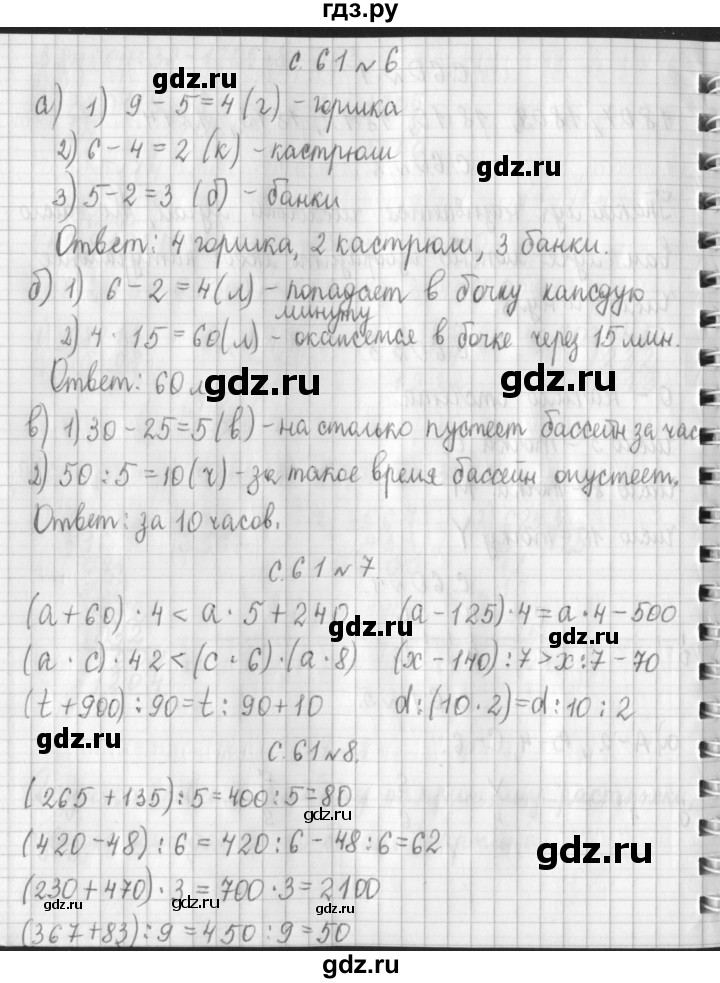 гдз.ру
с. 61 № 6
а) 1) 9 - 5 = 4 (г) - горшка
2) 6 - 4 = 2 (к) - кастрюли
3) 5 - 2 = 3 (б) - банки
Ответ: 4 горшка, 2 кастрюли, 3 банки.
б) 1) 6 - 2 = 4 (л) - попадает в бочку каждую
минуту
2) 4 · 15 = 60 (л) - окажется в бочке через 15 мин.
Ответ: 60 л
в) 1) 30 - 25 = 5 (в) - на столько пустеет бассейн за час
2) 50 : 5 = 10 (ч) - за такое время бассеин опустеет.
Ответ: за 10 часов.
с. 61 № 7
(a + 60) · 4 < a · 5 + 240 (a - 125) · 4 = a · 4 - 500
(a · c) · 42 < (c · 6) · (a · 8) (x - 140) : 7 > x : 7 - 70
(t + 900) : 90 = t : 90 + 10 d : (10 · 2) = d : 10 : 2
с. 61 № 8.
(265 + 135) : 5 = 400 : 5 = 80
(420 - 48) : 6 = 420 : 6 - 48 : 6 = 62
(230 + 470) · 3 = 700 · 3 = 2100
(367 + 83) : 9 = 450 : 9 = 50
gdz.ru
gdz.ru
gdz.ru
gdz.ru
gdz.ru
gdz.ru
gdz.ru
gdz.ru
gdz.ru
gdz.ru
gdz.ru
gdz.ru
gdz.ru